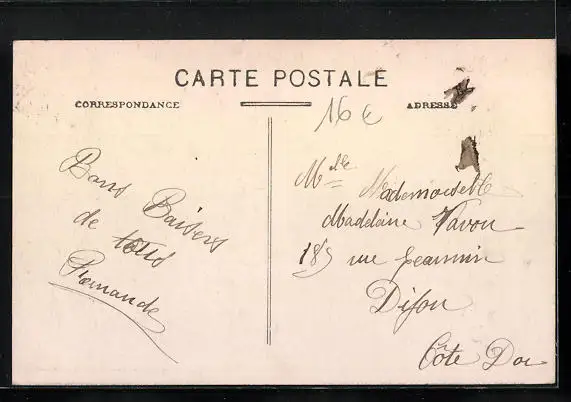 CARTE POSTALE
CORRESPONDANCE
ADRESSE
16 €
Bons Baisers
de tous
Mlle Mademoiselle
Madeleine Vavon
185 rue Jeannin
Dijon
Côte Dor